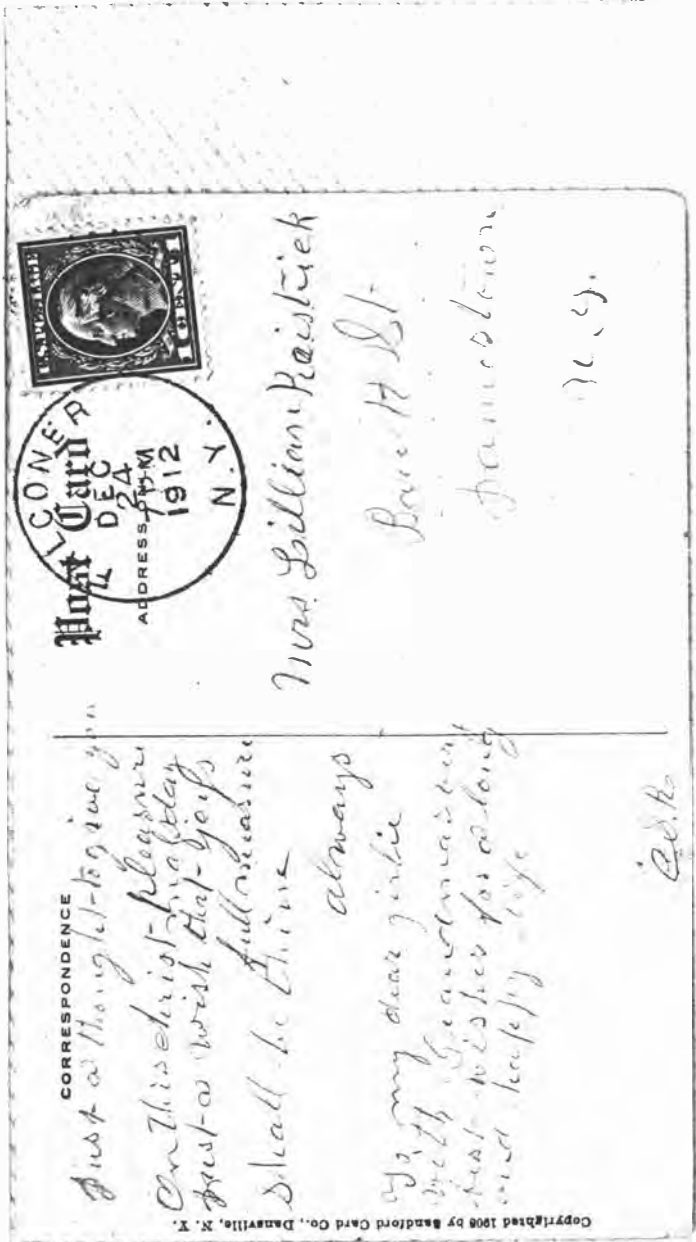 CORRESPONDENCE
Just a thought to give you
pleasure
On this christmas day
Just a wish that joys
full measure
Shall be thine
always
To my dear girlie
with Grandma's very
best wishes for a long
and happy life
Copyrighted 1908 by Sandford Card Co., Dansville, N. Y.
Post Card
ADDRESS ONLY
FALCONER
DEC
24
1912
N.Y.
U.S. POSTAGE
1 CENT 1
Mrs. Lillian Raistrick
St
Jamestown
N.Y.